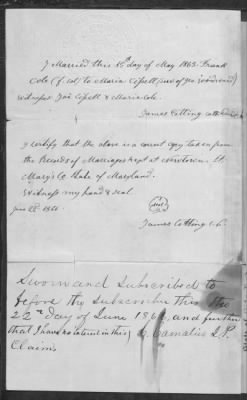 I Married this 15th day of May 1863. Frank
Cole (f. col) to Maria Copsell
witnesses Joe Copsell & Maria Cole.
James Cotting
I certify that the above is a correct copy taken from
the Records of Marriages kept at Newtown. St.
Mary's Co State of Maryland.
Witness my hand & seal.
June 22d
James Cotting
Sworn and Subscribed to
before the Subscriber this the
22nd day of June and further
that I have no interest in this
Claim